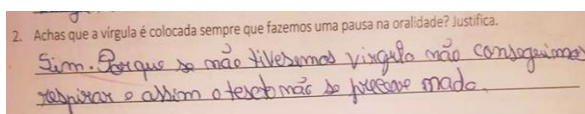 2. Achas que a vírgula é colocada sempre que fazemos uma pausa na oralidade? Justifica.
Sim. Porque se não tivesemos virgula não conseguimos
respirar e assim o texto não se precebe nada.